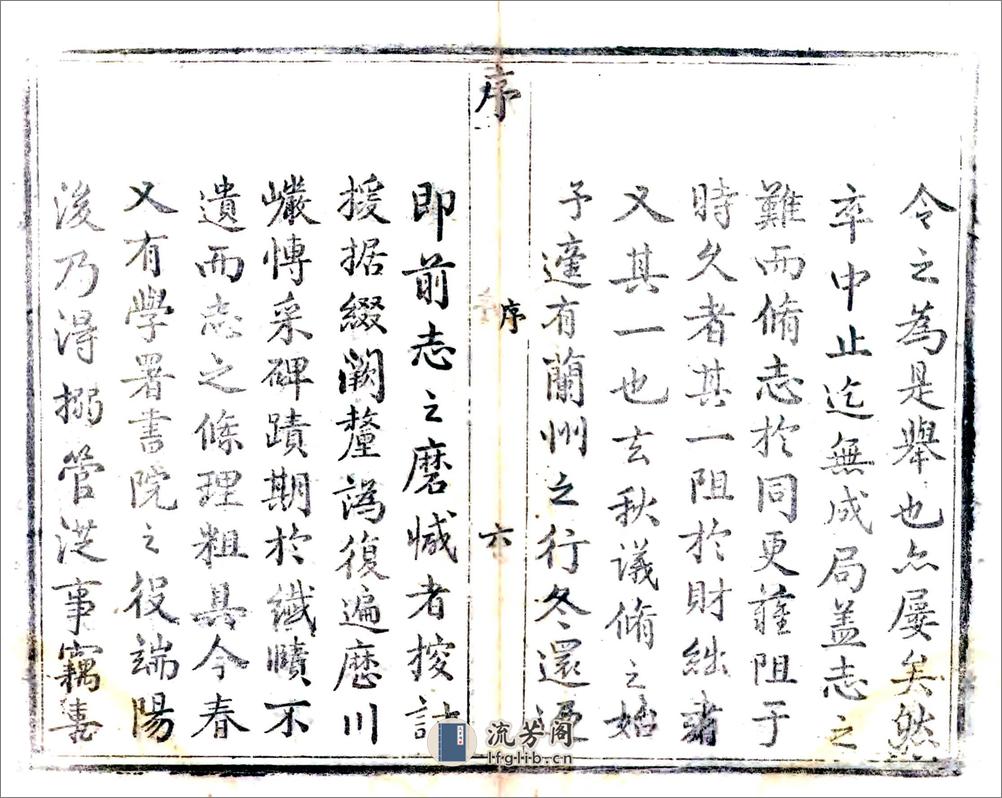 令之為是舉也亦屡矣然
卒中止迄無成局盖志之
難而脩志於同更難阻于
時久者其一阻於財絀者
又其一也去秋議脩之始
予適有蘭州之行冬還
序
序
六
即前志之磨滅者按討
援据綴闕釐譌復遍歷川
巗博采碑蹟期於纖賾不
遺而志之條理粗具今春
又有學署書院之役端陽
後乃得搦管従事竊
流芳阁
lfglib.cn